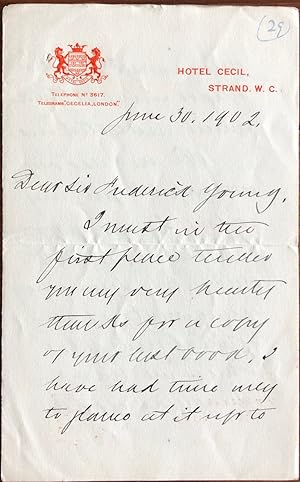 (29)
HOTEL CECIL,
STRAND. W. C.
TELEPHONE Nº 3617.
TELEGRAMS "CECELIA, LONDON."
June 30. 1902.
Dear Sir Frederick Young,
I must in the
first place tender
you my very hearty
thanks for a copy
of your last book. I
have had time only
to glance at it up to